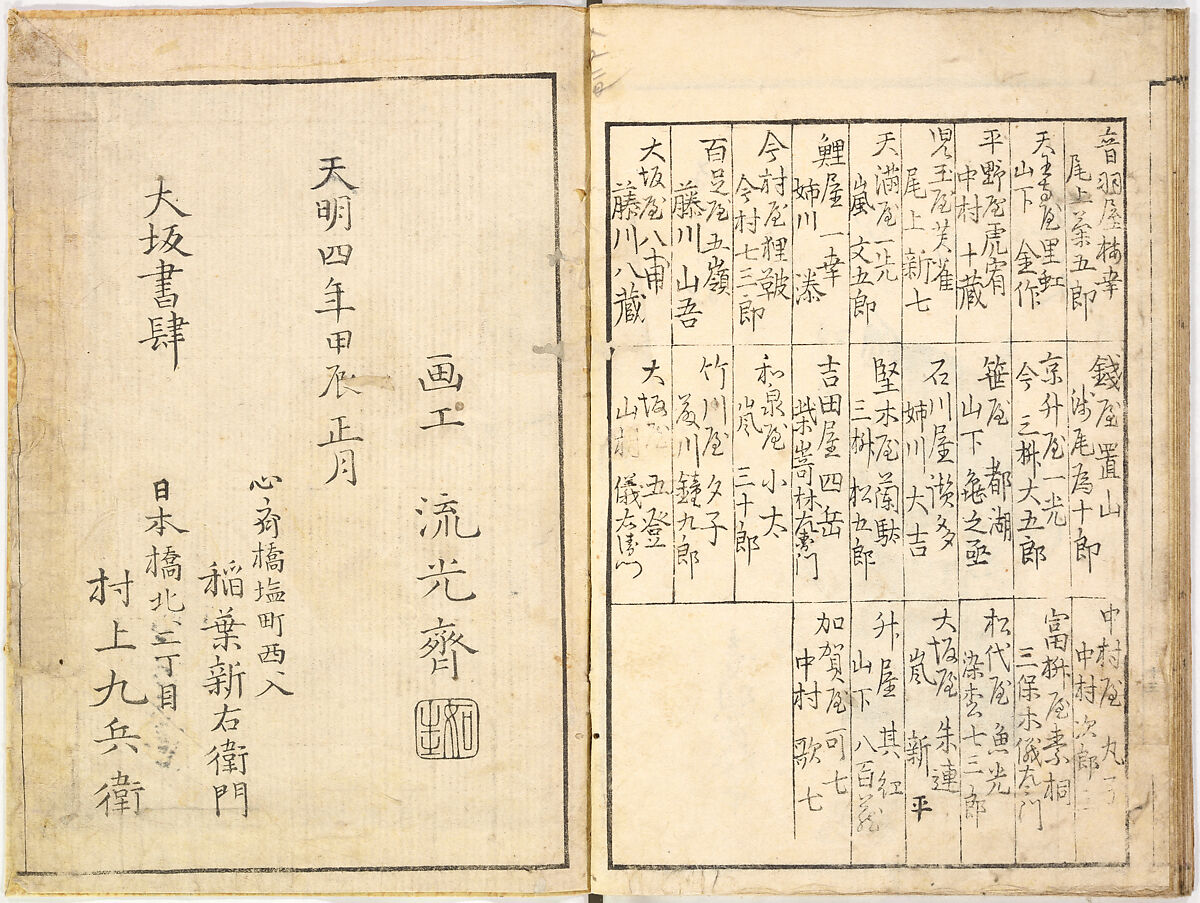 音羽屋梅幸
尾上菊五郎
天王寺屋里虹
山下 金作
平野屋虎宥
中村 十蔵
児玉屋芙雀
尾上 新七
天満屋一光
嵐 文五郎
鯉屋 一幸
姉川
今村屋狸皷
今村七三郎
百足屋五嶺
藤川 山吾
大坂屋八甫
藤川八蔵
銭屋置山
浅尾為十郎
京升屋一光
今三桝大五郎
笹屋 都湖
山下亀之亟
石川屋
姉川 大吉
堅木屋蘭駄
三桝松五郎
吉田屋四岳
柴嵜林左衛門
和泉屋小太
嵐 三十郎
竹川屋夕子
藤川鐘九郎
大坂屋五登
山村儀右衛門
中村屋
中村次郎三
富桝屋素桐
三保木儀左衛門
松代屋魚光
染松七三郎
大坂屋朱連
嵐 新平
升屋其紅
山下八百蔵
加賀屋可七
中村 歌七
画工 流光齊
如圭
天明四年甲辰正月
大坂書肆
心斎橋塩町西入
稲葉新右衛門
日本橋北二丁目
村上九兵衛